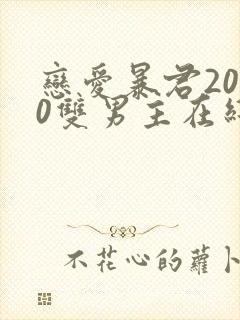 戀愛暴君20
0雙男主在
不花心的蘿卜